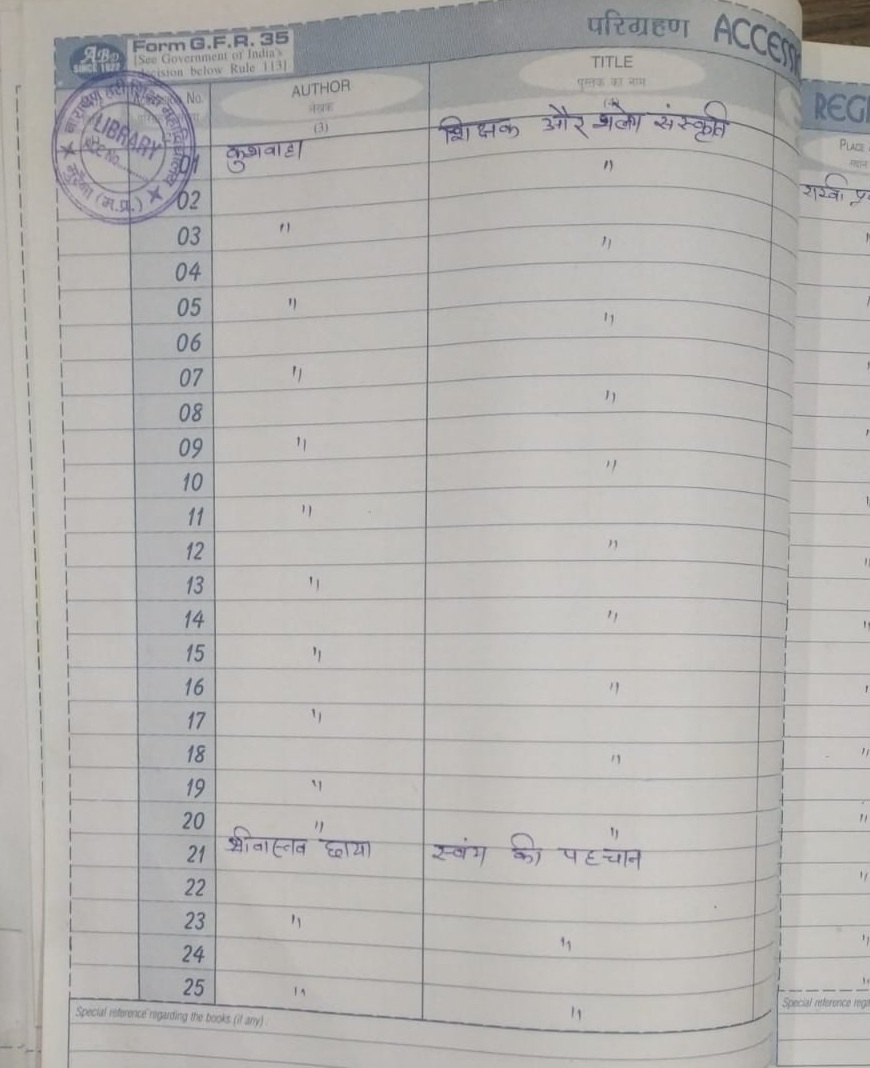 परिग्रहण ACCESSI
ABD
SINCE 1922
Form G.F.R. 35
[See Government of India's
decision below Rule 113]
No.
AUTHOR
लेखक
(3)
TITLE
पुस्तक का नाम
(4)
REGI
PLACE
स्थान
LIBRARY
ACC No.
(म.प्र.)
01 कुशवाहा शिक्षक और संस्कृति
"
02
03 "
"
04
05 "
"
06
07 "
"
08
09 "
"
10
11 "
"
12
13 "
"
14
15 "
"
16
17 "
"
18
19 "
20 " "
21 श्रीवास्तव छाया स्वंय की पहचान
22
23 "
24 "
25 " "
Special reference regarding the books (if any) :
Special reference rega